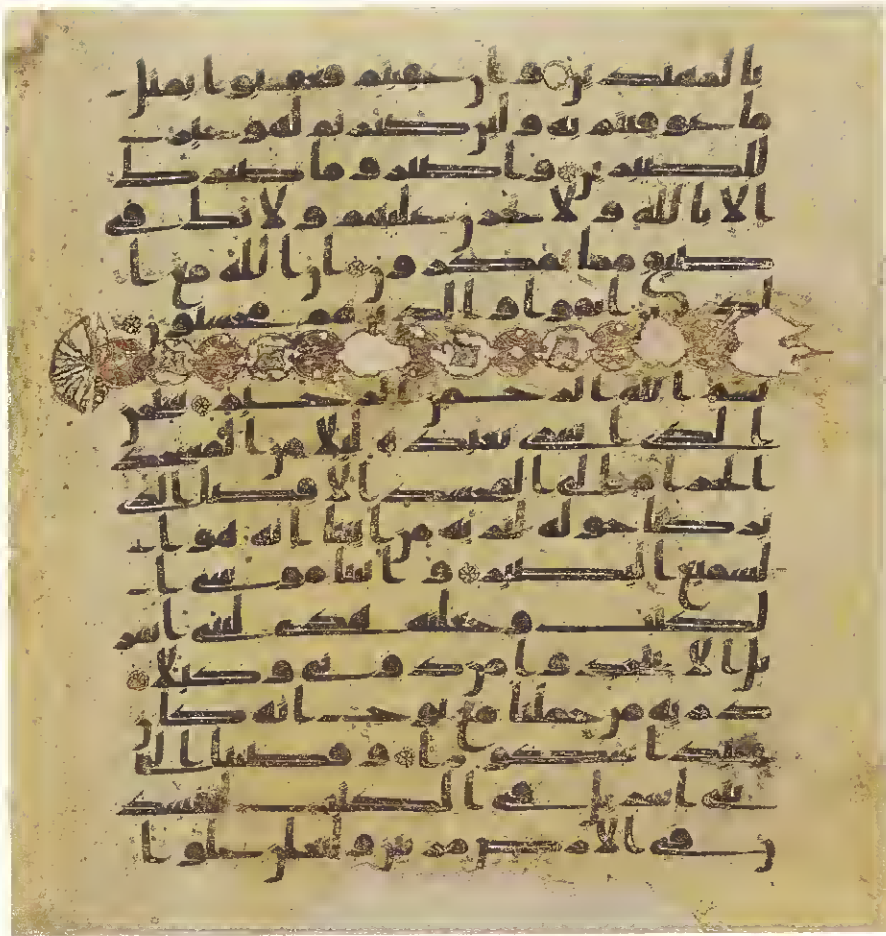 بالمهتدين وان عقبتم فعقبوا بمثل
ما عوقبتم به ولئن صبرتم لهو خير
للصبرين واصبر وما صبرك
الا بالله ولا تحزن عليهم ولا تك في
ضيق مما يمكرون ان الله مع ا
لذين اتقوا والذين هم محسنون
بسم الله الرحمن الرحيم سبحن
الذي اسرى بعبده ليلا من المسجد
الحرام الى المسجد الاقصا الذي
بركنا حوله لنريه من ايتنا انه هو ا
لسميع البصير واتينا موسى ا
لكتب وجعلنه هدى لبني اسر
يل الا تتخذوا من دوني وكيلا
ذرية من حملنا مع نوح انه كان
عبدا شكورا وقضينا الى
بني اسريل في الكتب لتفسد
ن في الارض مرتين ولتعلن علوا